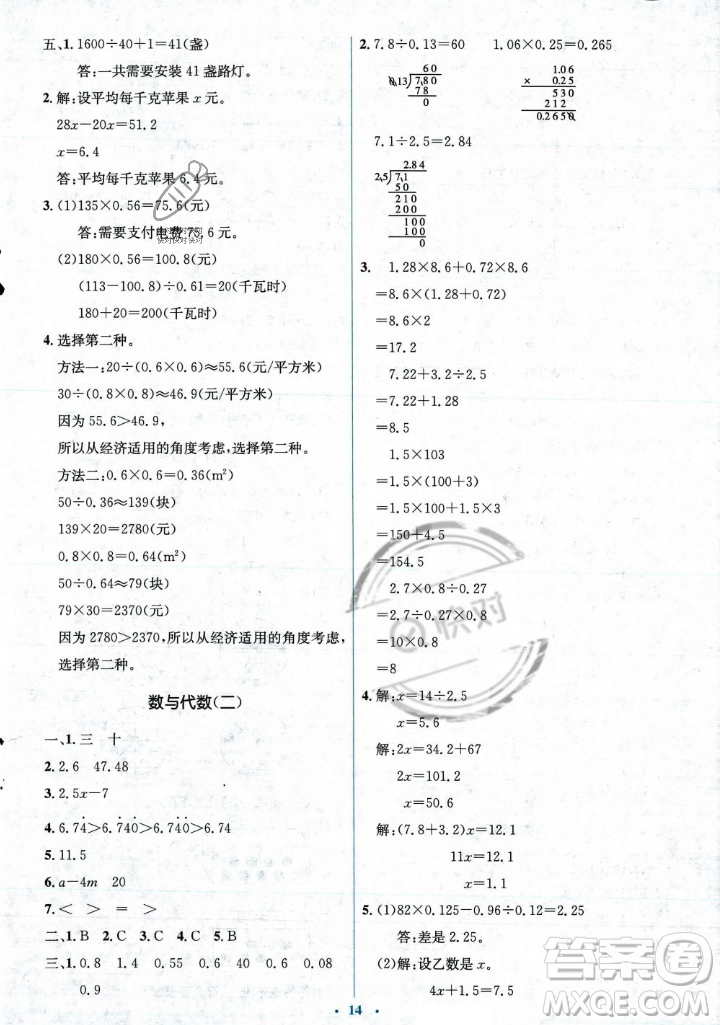 五、1. 1600÷40+1=41(盏)
答:一共需要安装 41 盏路灯。
2. 解:设平均每千克苹果 x 元。
28x-20x=51.2
x=6.4
答:平均每千克苹果 6.4 元。
3. (1)135×0.56=75.6(元)
答:需要支付电费 75.6 元。
(2)180×0.56=100.8(元)
(113-100.8)÷0.61=20(千瓦时)
180+20=200(千瓦时)
4. 选择第二种。
方法一:20÷(0.6×0.6)≈55.6(元/平方米)
30÷(0.8×0.8)≈46.9(元/平方米)
因为 55.6>46.9,
所以从经济适用的角度考虑,第二种。
方法二:0.6×0.6=0.36(m²)
50÷0.36≈139(块)
139×20=2780(元)
0.8×0.8=0.64(m²)
50÷0.64≈79(块)
79×30=2370(元)
因为 2780>2370,所以从经济适用的角度考虑,
选择第二种。
数与代数(二)
一、1. 三 十
2. 2.6 47.48
3. 2.5x-7
4. 6.74̇>6.7̇40̇>6.74̇0̇>6.74
5. 11.5
6. a-4m 20
7. < > = >
二、1. B 2. C 3. C 4. B
三、1. 0.8 1.4 0.55 40 0.6 0.08
0.9
2. 7.8÷0.13=60 1.06×0.25=0.265
60
0.13 7.80
78
0
1.06
× 0.25
530
212
0.2650
7.1÷2.5=2.84
2.84
2.5 7.1
50
210
200
100
100
0
3. 1.28×8.6+0.72×8.6
=8.6×(1.28+0.72)
=8.6×2
=17.2
7.22+3.2÷2.5
=7.22+1.28
=8.5
1.5×103
=1.5×(100+3)
=1.5×100+1.5×3
=150+4.5
=154.5
2.7×0.8÷0.27
=2.7÷0.27×0.8
=10×0.8
=8
4. 解: x=14÷2.5
x=5.6
解: 2x=34.2+67
2x=101.2
x=50.6
解:(7.8+3.2)x=12.1
11x=12.1
x=1.1
5. (1)82×0.125-0.96÷0.12=2.25
答:差是 2.25。
(2)解:设乙数是 x。
4x+1.5=7.5
快对
答案圈
MXQE.COM
14